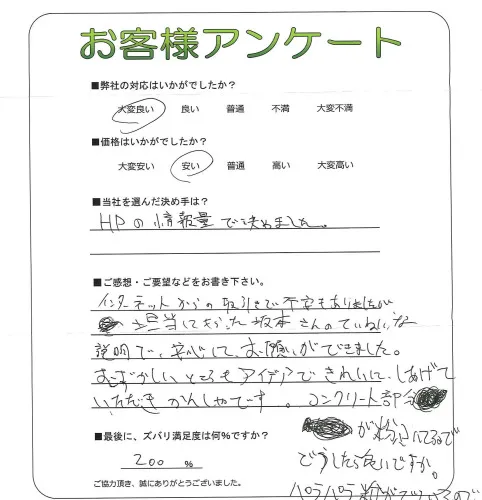 お客様アンケート
■弊社の対応はいかがでしたか?
大変良い 良い 普通 不満 大変不満
■価格はいかがでしたか?
大変安い 安い 普通 高い 大変高い
■当社を選んだ決め手は?
HPの情報量で決めました。
■ご感想・ご要望などをお書き下さい。
インターネットからの取引きで不安もありましたが
担当になった坂本さんのていねいな
説明で、安心して、お願いができました。
むずかしいところもアイデアできれいに、しあげて
いただき かんしゃです。コンクリート部分
が粉吹いてるので
どうしたら良いですか。
■最後に、ズバリ満足度は何%ですか?
200 %
パラパラ粉が
ご協力頂き、誠にありがとうございました。